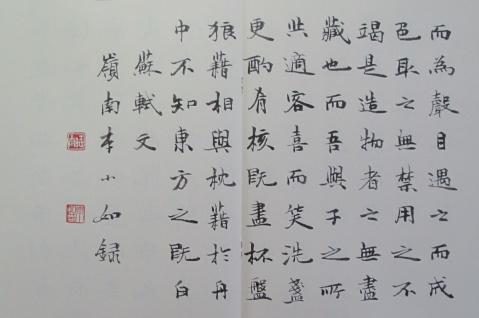 而為聲目遇之而成
色取之無禁用之不
竭是造物者之無盡
藏也而吾與子之所
共適客喜而笑洗盞
更酌肴核既盡杯盤
狼藉相與枕藉於舟
中不知東方之既白
蘇軾文
嶺南李小如錄